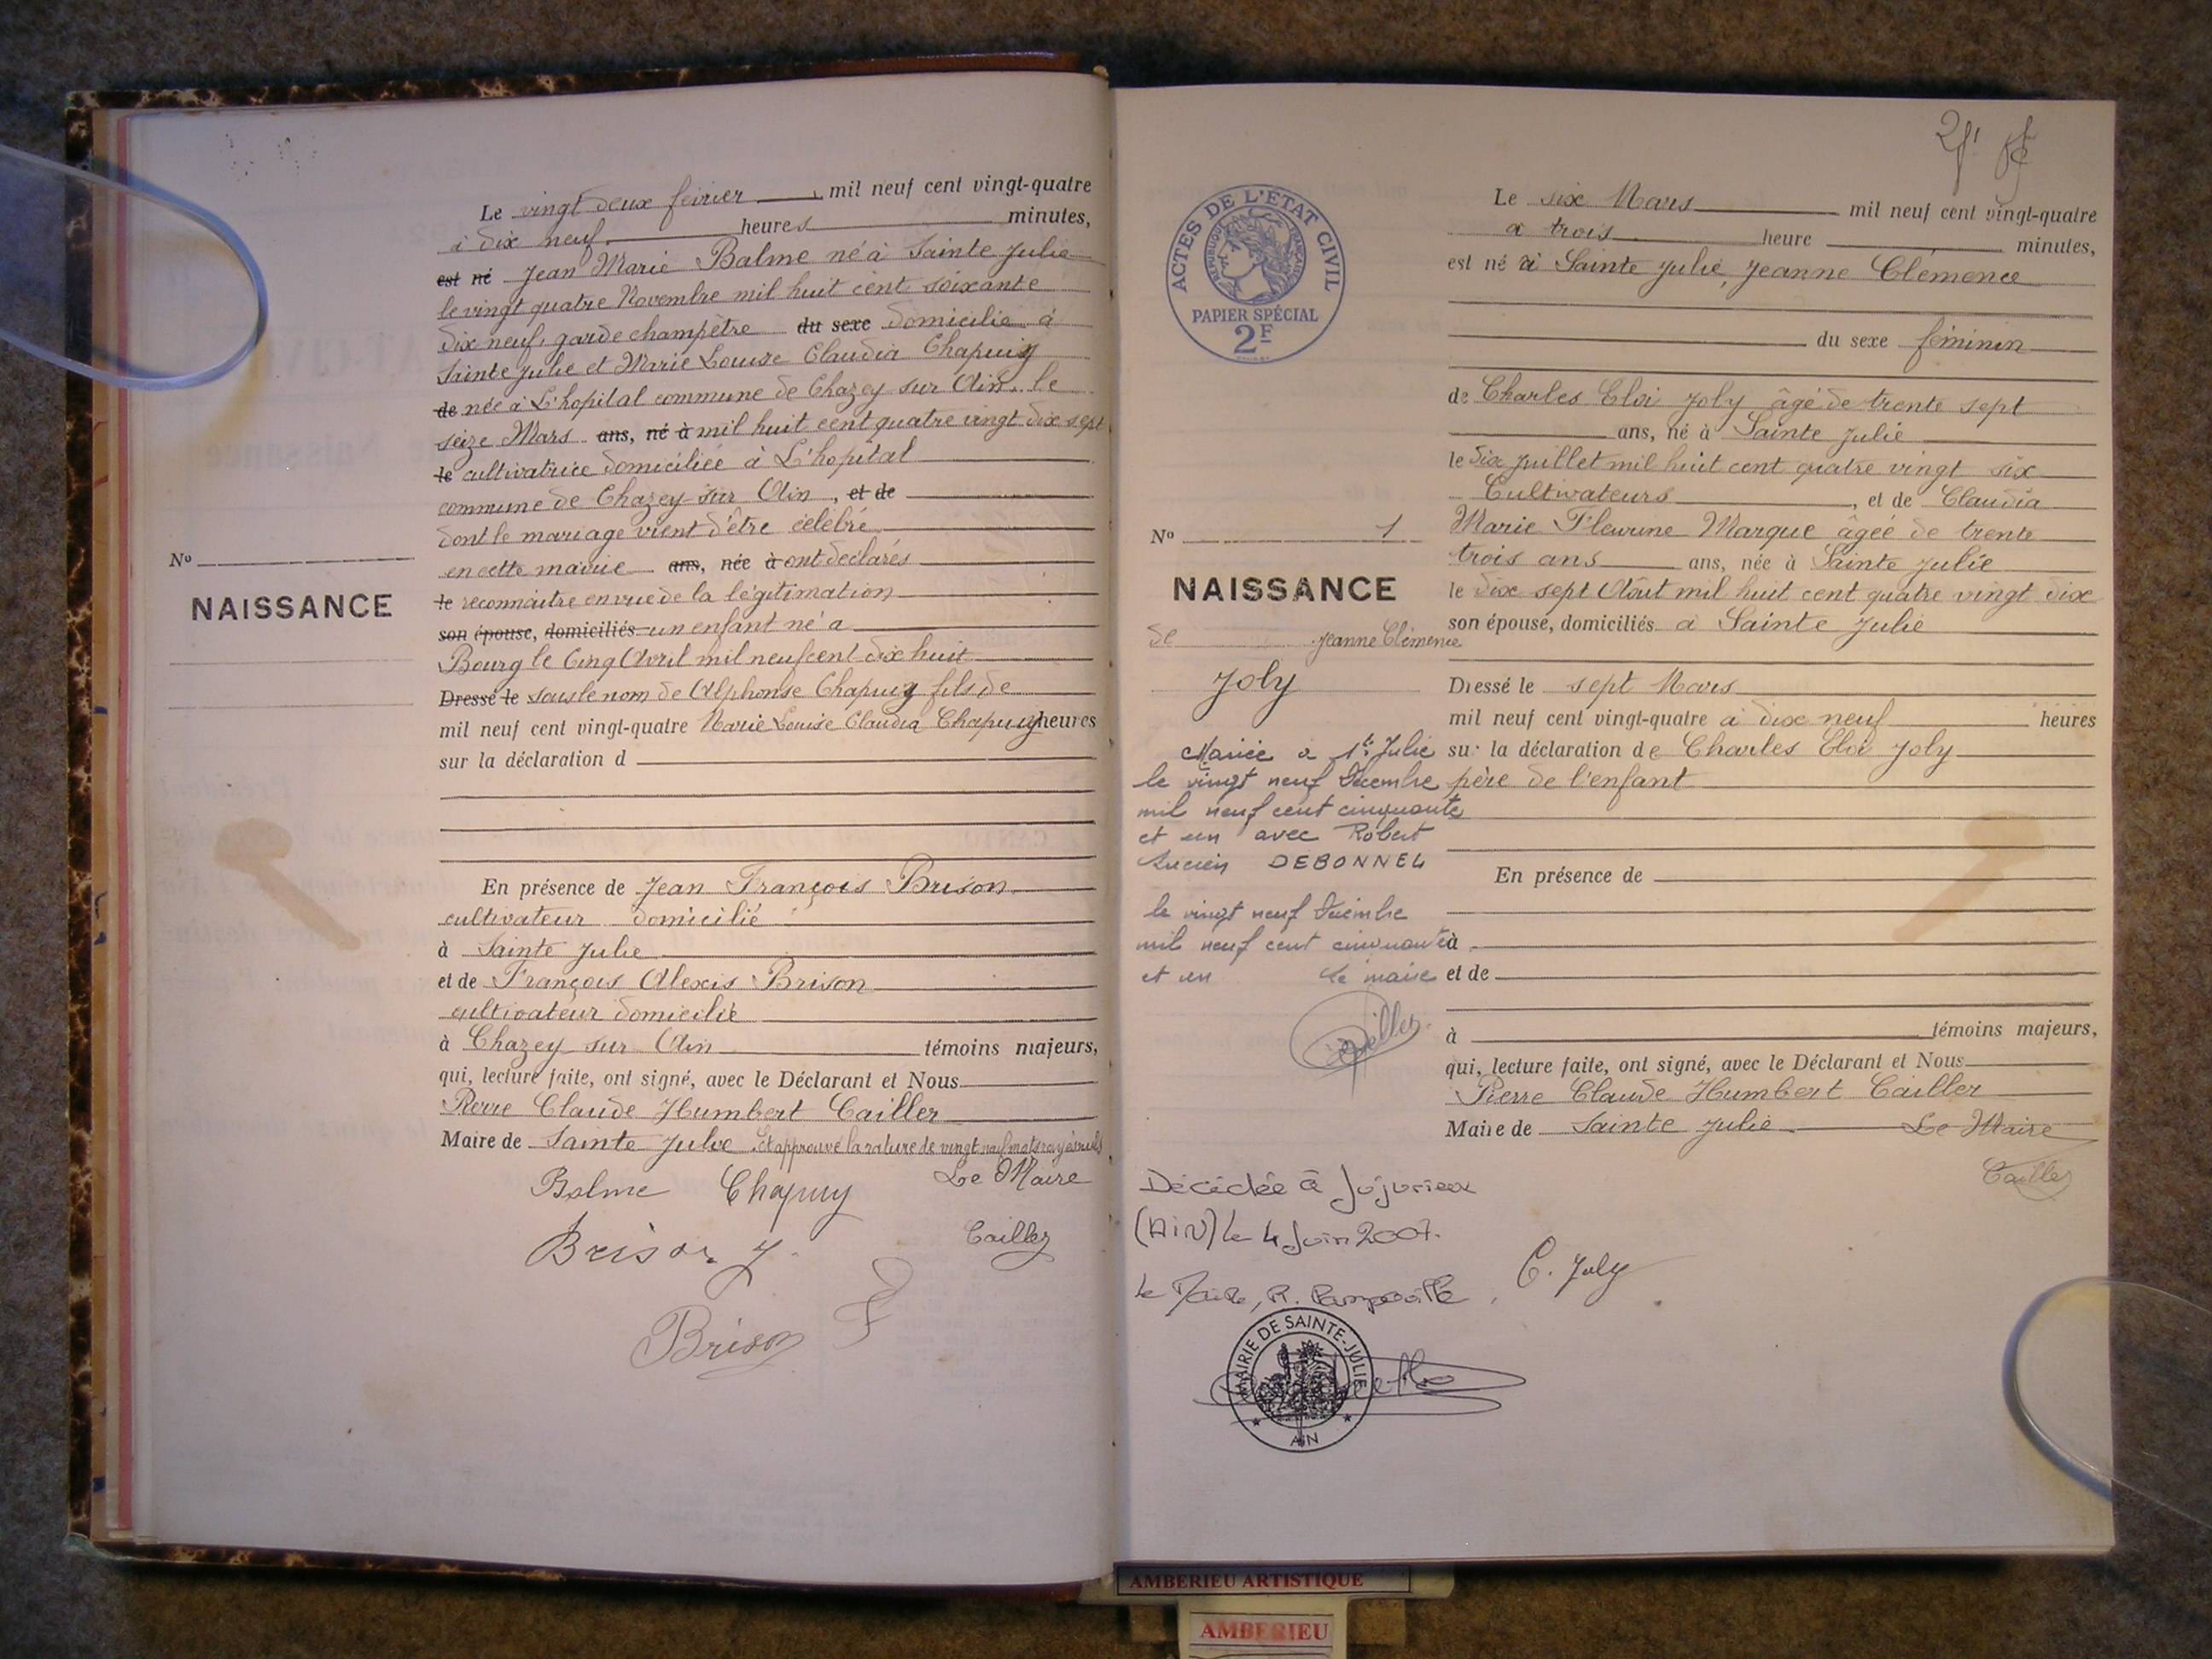 Le vingt deux février, mil neuf cent vingt-quatre
à dix neuf heures minutes,
est né Jean Marie Balme né à Sainte Julie
le vingt quatre Novembre mil huit cent soixante
dix neuf, garde champêtre du sexe domicilié à
Sainte Julie et Marie Louise Claudia Chapuy
de née à L'hopital commune de Chazey sur Ain, le
seize Mars ans, né à mil huit cent quatre vingt dix sept
le cultivatrice domiciliée à L'hopital
commune de Chazey sur Ain, et de
dont le mariage vient d'être célébré
en cette mairie ans, née à ont declarés
le reconnaitre en vue de la légitimation
son épouse, domiciliés un enfant né a
Bourg le Cinq Avril mil neuf cent dix huit
Dressé le sous le nom de Alphonse Chapuy fils de
mil neuf cent vingt-quatre Marie Louise Claudia Chapuy heures
sur la déclaration d
No
NAISSANCE
En présence de Jean François Brison
cultivateur domicilié
à Sainte Julie
et de François Alexis Brison
cultivateur domicilié
à Chazey sur Ain témoins majeurs,
qui, lecture faite, ont signé, avec le Déclarant et Nous
Pierre Claude Humbert Cailler
Maire de Sainte Julie. Et approuvé la rature de vingt neuf mots rayés nuls
Le Maire
Balme Chapuy
Cailler
Brison J.
Brison F
ACTES DE L'ÉTAT CIVIL
RÉPUBLIQUE FRANÇAISE
PAPIER SPÉCIAL
2F
Le six Mars mil neuf cent vingt-quatre
a trois heure minutes,
est né à Sainte Julie, Jeanne Clémence
du sexe féminin
de Charles Eloi Joly âgé de trente sept
ans, né à Sainte Julie
le dix Juillet mil huit cent quatre vingt six
Cultivateurs, et de Claudia
Marie Fleurine Marque âgée de trente
trois ans ans, née à Sainte Julie
le dix sept Août mil huit cent quatre vingt dix
son épouse, domiciliés à Sainte Julie
Dressé le sept Mars
mil neuf cent vingt-quatre à dix neuf heures
sur la déclaration de Charles Eloi Joly
père de l'enfant
No 1
NAISSANCE
de Jeanne Clémence
Joly
Mariée à Ste Julie
le vingt neuf Décembre
mil neuf cent cinquante
et un avec Robert
Lucien DEBONNEL
le vingt neuf Décembre
mil neuf cent cinquante
et un le maire
Cailler
En présence de
à
et de
à témoins majeurs,
qui, lecture faite, ont signé, avec le Déclarant et Nous
Pierre Claude Humbert Cailler
Maire de Sainte Julie Le Maire
Cailler
Décédée à Jujurieux
(AIN) le 4 Juin 2007.
Le Maire, R.
C. Joly
MAIRIE DE SAINTE-JULIE
AIN
AMBERIEU ARTISTIQUE
AMBERIEU